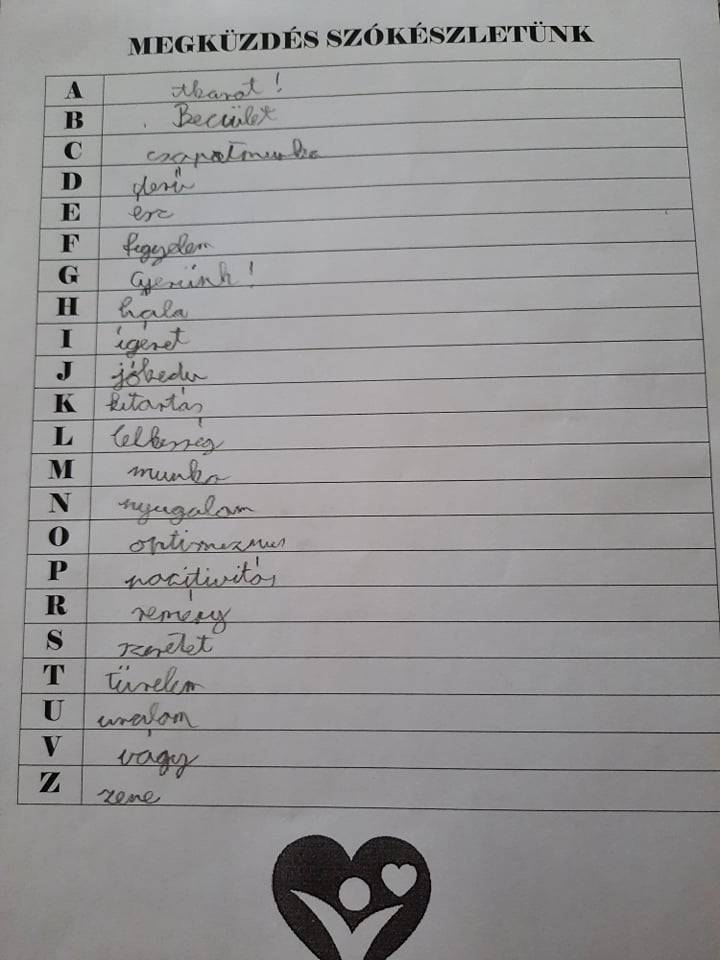 MEGKÜZDÉS SZÓKÉSZLETÜNK
A Akarat!
B Becsület
C csapatmunka
D derű
E ész
F figyelem
G Gyerünk!
H hála
I ígéret
J jókedv
K kitartás
L lelkesség
M munka
N nyugalom
O optimizmus
P pozitivitás
R remény
S szeretet
T türelem
U uralom
V vágy
Z zene